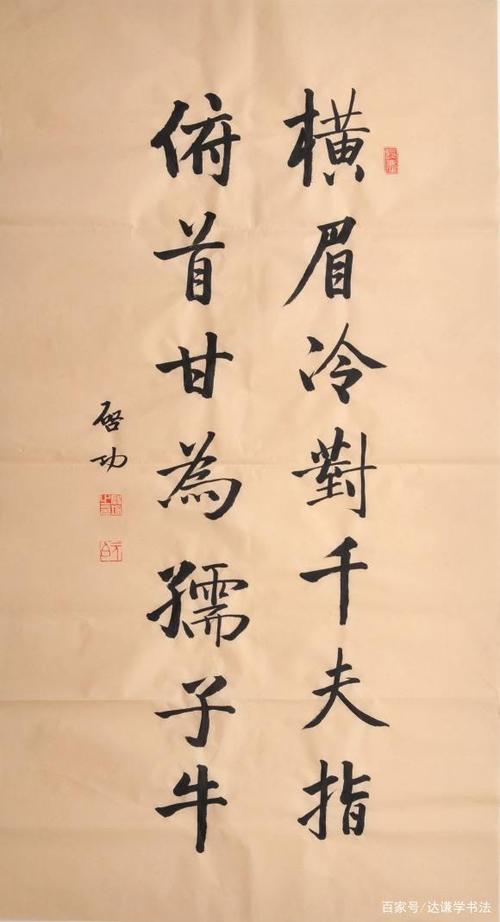 橫眉冷對千夫指
俯首甘為孺子牛
啓功
百家号/达谦学书法